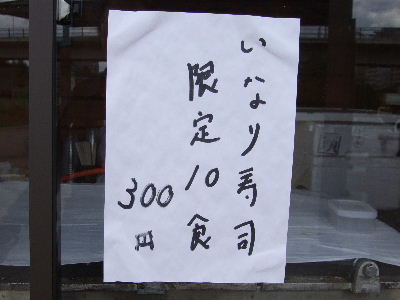 いなり寿司
限定10食
300円